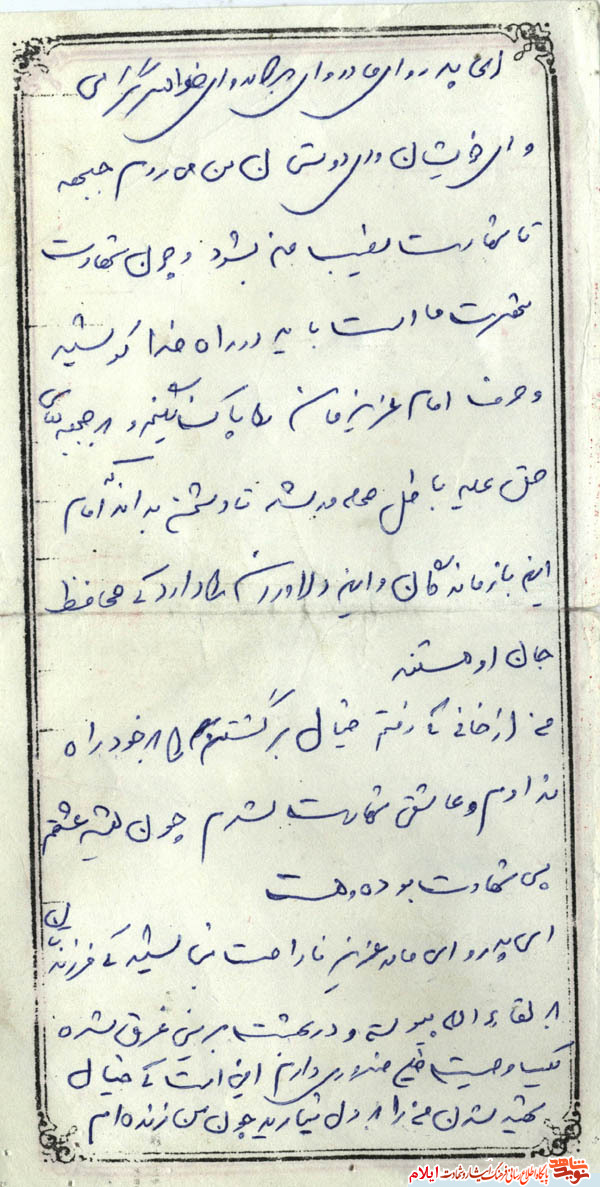 ای پدر و ای مادر و ای برادر و ای خواهر گرامی
و ای خویشان و ای دوستان من می روم جبهه
تا شهادت نصیب من بشود و چون شهادت
ما است باید در راه خدا کوشید
و حرف امام عزیزمان را و به جبهه های
حق علیه باطل باشد تا دشمن بداند که امام
این بازماندگان و این دلاوران را دارد که محافظ
جان او هستند
من از خانه که رفتم خیال برگشتن را به خود راه
ندادم و عاشق شهادت شدم چون همیشه عشقم
پی شهادت بوده و هست
ای پدر و ای مادر عزیز ناراحت نباشید که فرزندتان
به لقاءالله پیوسته و در بهشت برین غرق شده
یک وصیت خیلی ضروری دارم این است که خیال
شهید شدن من را به دل نیارید چون من زنده ام
نوید شاهد
پایگاه اطلاع رسانی فرهنگ ایثار و شهادت ایلام